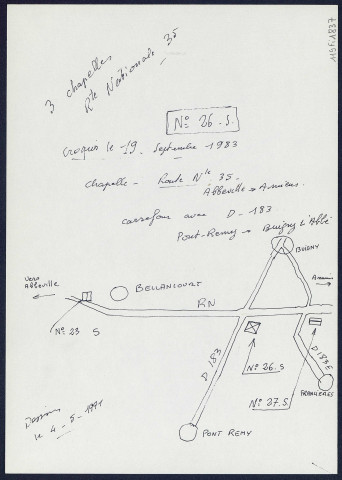 1197837
3 chapelles
Rte Nationale 35
N° 26.S.
Croquis le 19 Septembre 1983
chapelle - Route Nle 35.
Abbeville → Amiens.
carrefour avec D - 183
Pont-Remy → Buigny L'Abbé
BUIGNY
Vers
Abbeville
Amiens
BELLANCOURT
RN
N° 23 S
D 183
N° 26.S
D 183E
N° 27.S.
FRANCIERES
PONT REMY
Dessin
le 4-5-1991